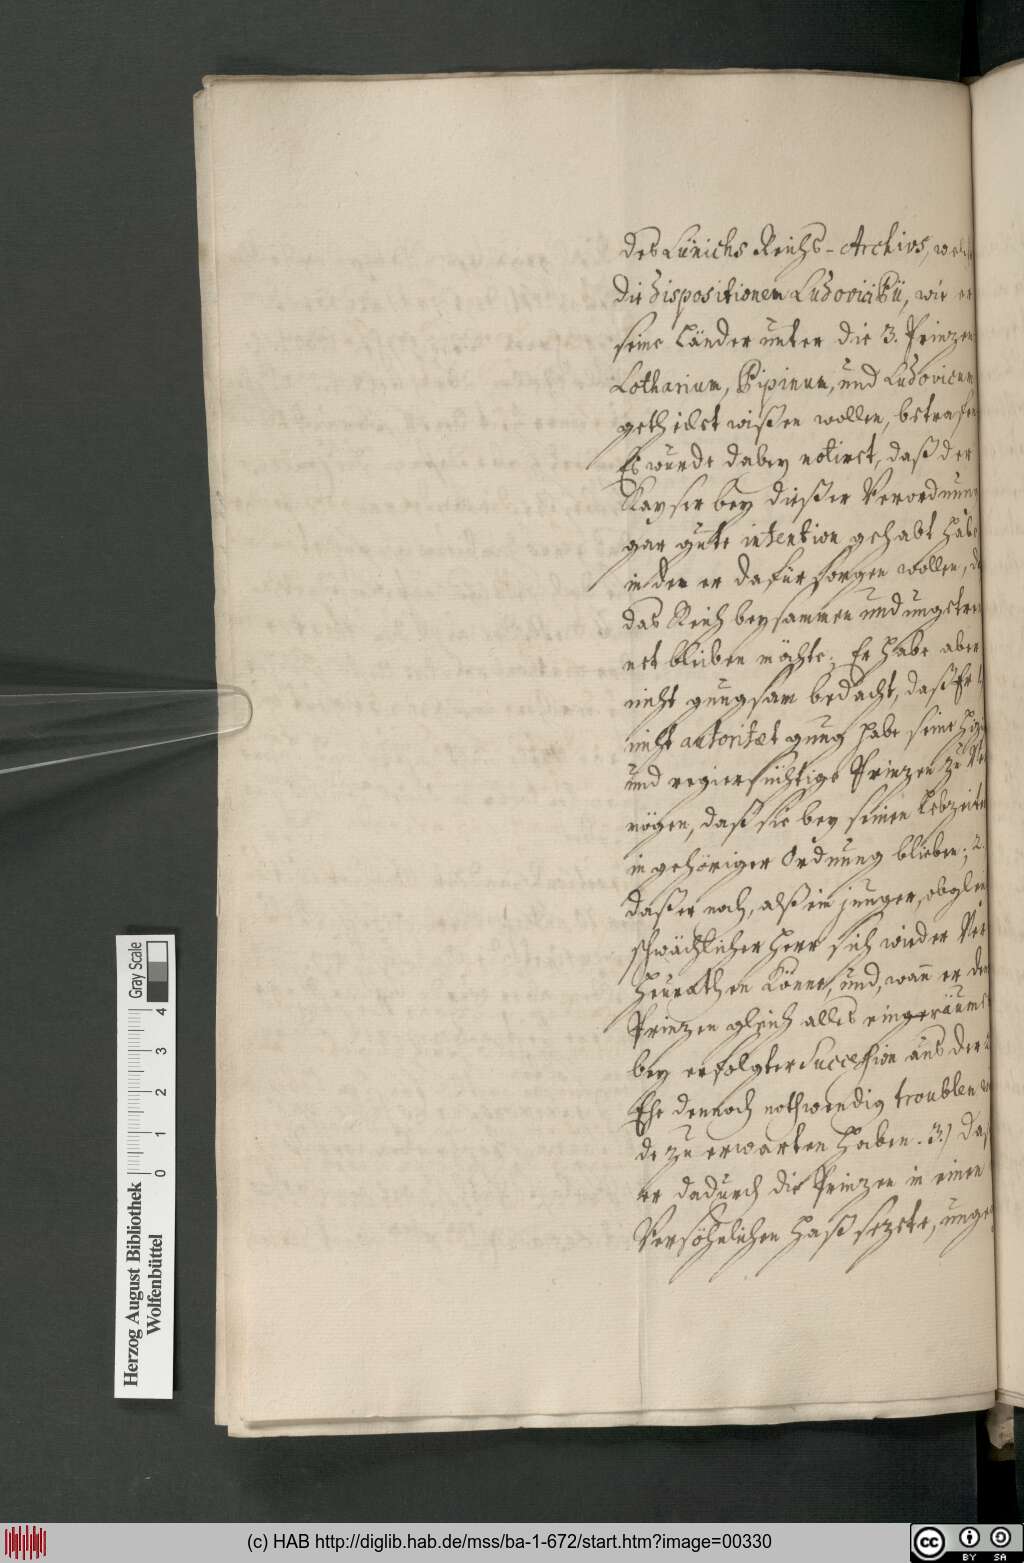 des Lünichs Reichs-Archivs,
die dispositionem Ludovici Pii, wie er
seine Länder unter die 3. Prinzen
Lotharium, Pipinum, und Ludovicum
getheilet wißen wollen, betrafen
Es wurde dabey notiret, daß der
Kayser bey dießer Verordnung
gar gute intention gehabt habe
indem er dafür sorgen wollen,
das Reich beysammen und ungetren
net bleiben möchte; Er habe aber
nicht gnugsam bedacht, daß Er
nicht autoritæt gnug habe seine
und regiersüchtige Prinzen zu
mögen, daß sie bey seinen Lebzeiten
in gehöriger Ordnung blieben; 2.
daß er noch, alß ein junger, obglei
schwächlicher Herr sich wieder Ver
heurathen könne, und, wann er den
Prinzen gleich alles eingeräumt
bey erfolgter Succession aus der 2
Ehe dennoch nothwendig troublen w
de zu erwarten haben. 3.) daß
er dadurch die Prinzen in einen
Versöhnlichen Haß sezete, unge
Herzog August Bibliothek
Wolfenbüttel
0 1 2 3 4
Gray Scale
(c) HAB http://diglib.hab.de/mss/ba-1-672/start.htm?image=00330
cc BY SA